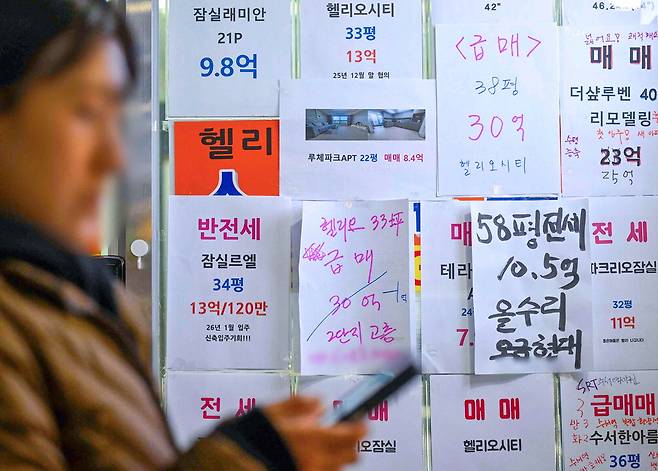 잠실래미안
21P
9.8억
헬리오시티
33평
13억
25년 12월 말 협의
42"
<급 매>
38평
30억
헬리오시티
매 매
더샾루벤 40
리모델링
23억
25억
헬리
루체파크APT 22평 매매 8.4억
반전세
잠실르엘
34평
13억/120만
26년 1월 입주
신축입주기회!!!
헬리오 33평
급매
30억
2단지 고층
매
테라
24
7.
58평전세
10.5억
올수리
전세
파크리오잠실
32평
11억
전 세
매 매
리오잠실
매 매
헬리오시티
SRT
급매매
수서한아름
36평